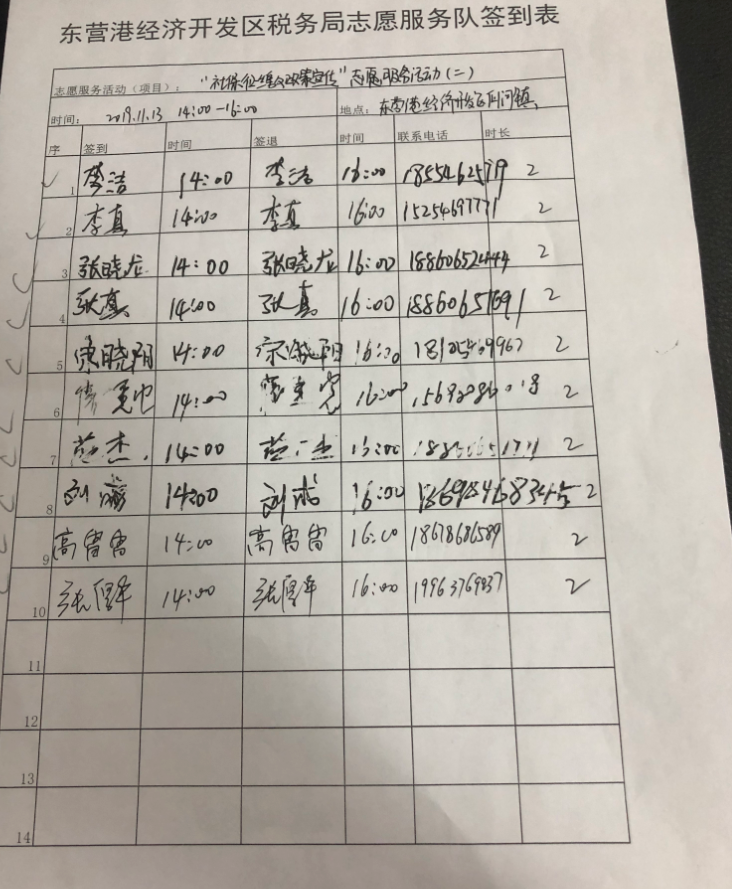 东营港经济开发区税务局志愿服务队签到表
志愿服务活动（项目）："社保征缴及政策宣传"志愿服务活动(二)
时间： 2019.11.13 14:00-16:00 地点：东营港经济开发区
序 签到 时间 签退 时间 联系电话 时长
1 李洁 14:00 李洁 16:00 2
2 李真 14:00 李真 16:00 15254697771 2
3 张晓龙 14:00 张晓龙 16:00 18860652444 2
4 张真 14:00 张真 16:00 18860651691 2
5 晓阳 14:00 晓阳 16:00 2
6 14:00 16:00 2
7 杰 14:00 16:00 2
8 刘 14:00 刘 16:00 2
9 高雷雷 14:00 高雷雷 16:00 18678686589 2
10 张 14:00 张 16:00 19963769937 2
11
12
13
14